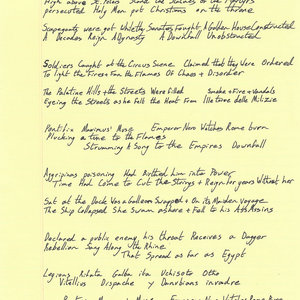 High above St. Peters stand the statues of the Martyrs
persecuted Holy Men put Christians on the throne
Scapegoats were got While the Senators Fought A Golden House Constructed
A Decades Reign A Dynasty A Downfall Unobstructed
Soldiers Caught at the Circus Scene Claimed that they Were Ordered
To light the Fires + Fan the Flames Of Chaos + Disorder
The Palatine Hills + the Streets Were filled Smoke + Fire + Vandals
Eyeing the Streets as he Felt the Heat From Il Torre delle Milizie
Pontifix Maximus' Muse Emperor Nero Watches Rome burn
Plucking a tune to the Flames
Strumming A Song to the Empires Downfall
Agrippinas poisoning Had Birthed him into Power
Time Had Come to Cut the Strings + Reign for years Without her
Sat at the Dock Was a Galleon Swapped + On its Maiden Voyage
The Ship Collapsed She Swam ashore + Fell to his Assassins
Declared a public enemy his throat Receives a Dagger
Rebellion Sang Along the Rhine
That Spread as far as Egypt
Legions Galba Otho
Vitellius Dispache y Danubians invadre